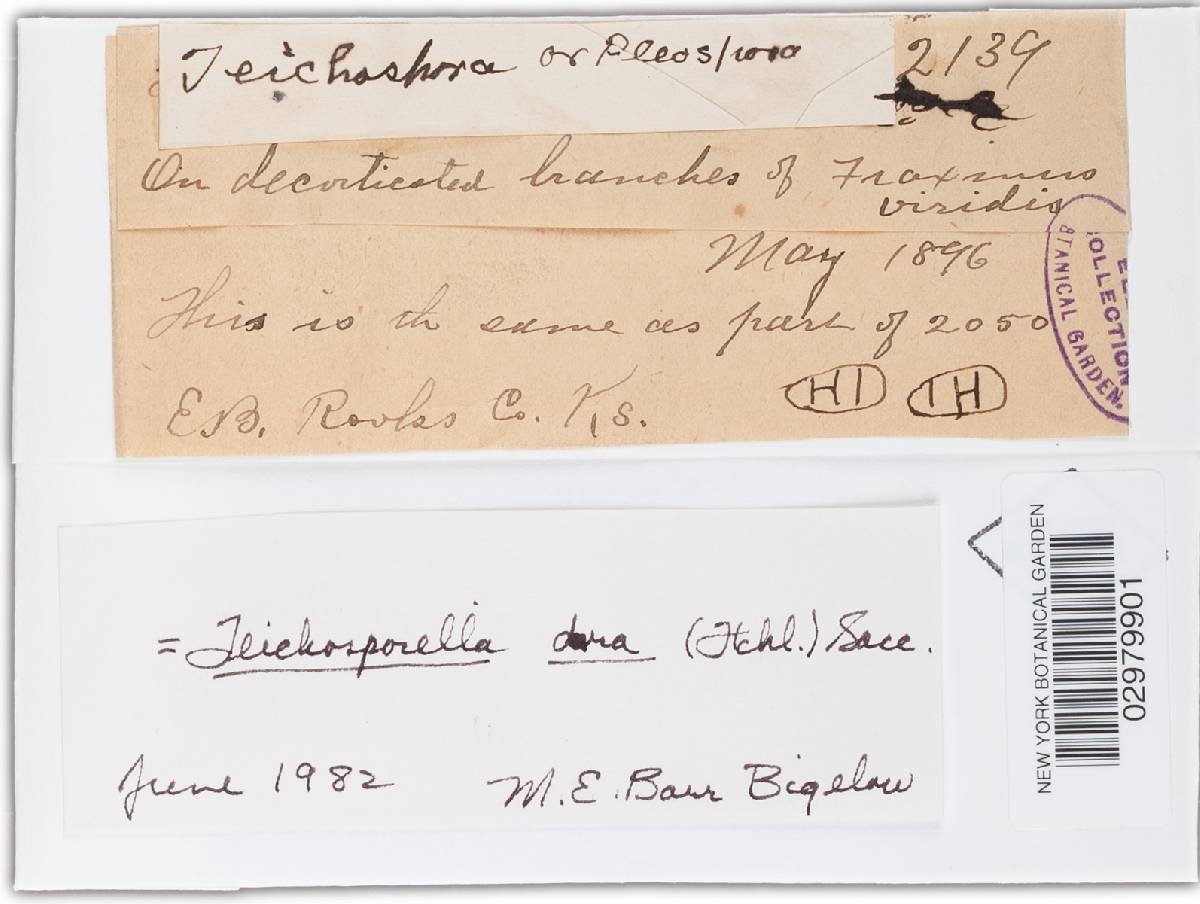 Teichospora or Pleospora
2139
On decorticated branches of Fraxinus
viridis
May 1896
This is th same as part of 2050
E.B. Rooks Co. Ks.
HI IH
OLLECTION
TANICAL GARDEN.
= Teichosporella dura (Fckl.) Sacc.
June 1982 M.E. Barr Bigelow
NEW YORK BOTANICAL GARDEN
02979901